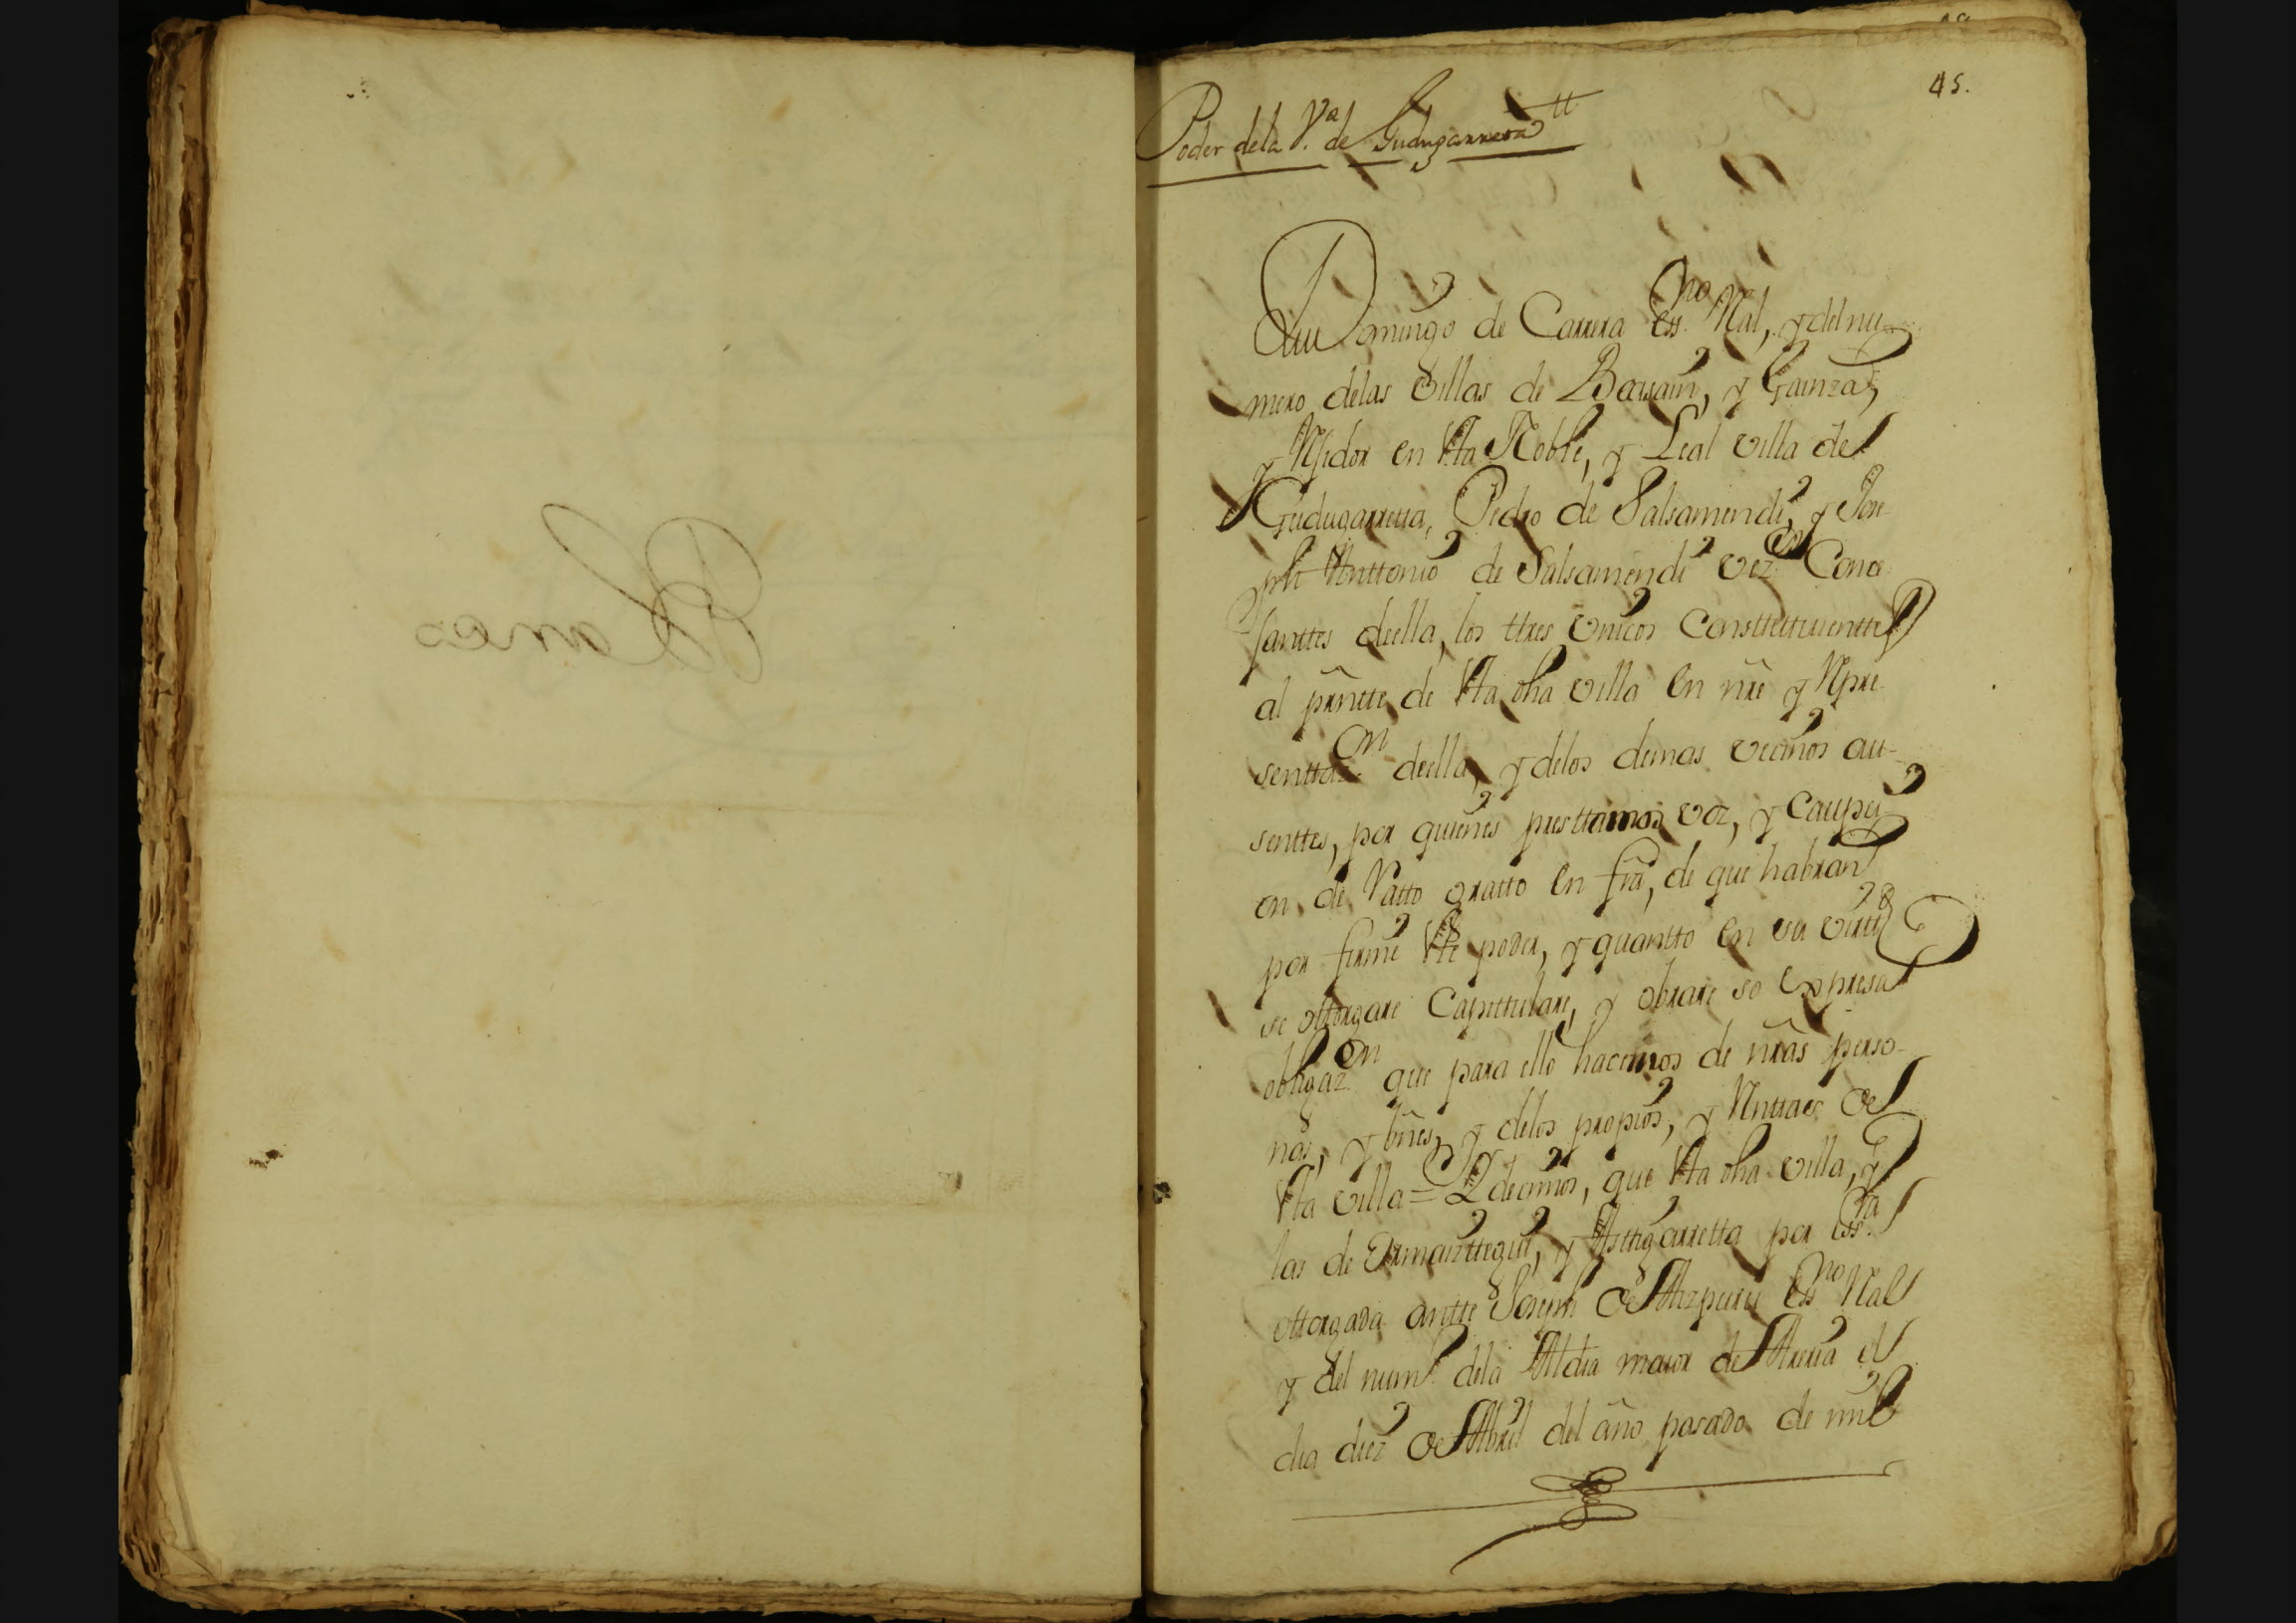 45.
Poder dela V.ª de Gudugarreta
Domingo de Carrera Ess.no Rãl, y del nu-
mero delas villas de Beasain, y Gainza,
y Rẽsidor en Esta Noble, y Leal villa de
Gudugarretta, Pedro de Salsamendi, y Jose-
ph Anttonio de Salsamendi vez.os Conce-
janttes deella, los ttres Vnicos Consttittuienttes
al prñtte de Esta dha villa en nr̃e y Repre-
senttaz.on deella, y delos demas vecinos au-
senttes, por quienes presttamos voz, y Caupci-
on de Ratto gratto en fr̃a, de que habran
por firme Este poder, y quantto en su virttd
se ottorgare Capittulare, y obrare so Expresa
obligaz.on que para ello hacemos de nr̃as perso-
nas, y bñes, y delos propios, y Renttas de
Esta villa = Y decimos, que Esta dha villa, y
las de Ormaiztegui, y Asttigarretta por Ess.ra
ottorgada antte Joseph de Aizpuru Ess.no Rãl
y del num.o dela Alcdia maior de Areria el
dia diez de Abril del año pasado de mil